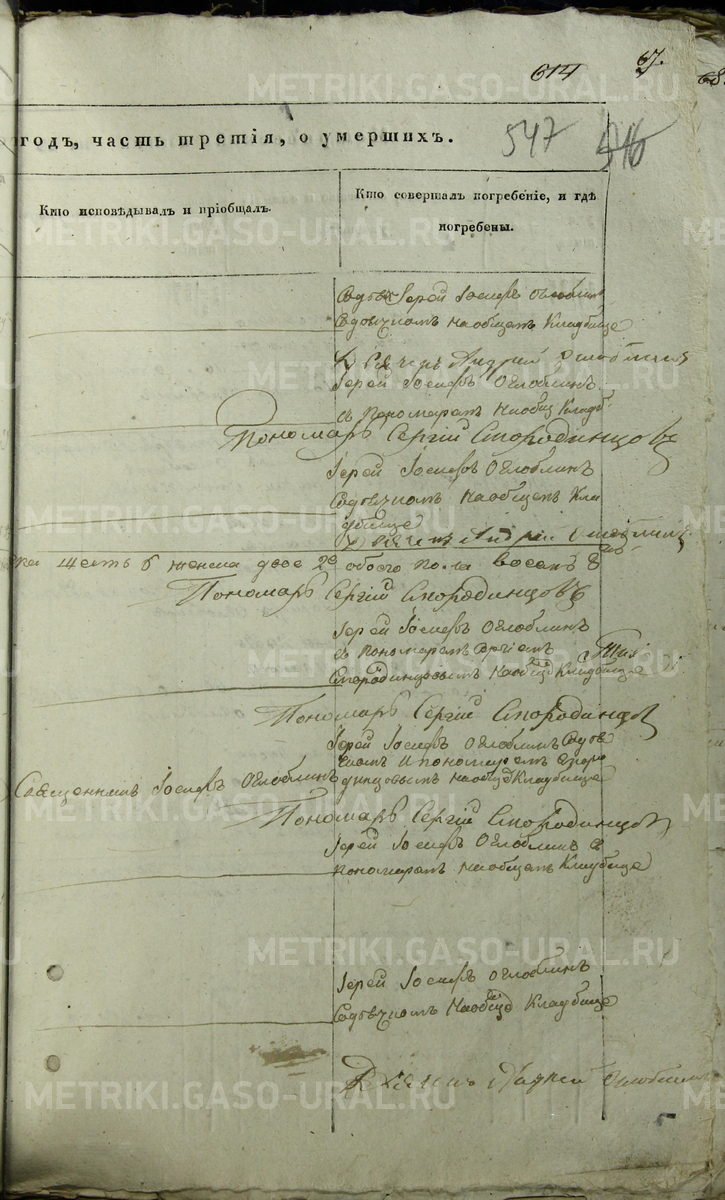 614 67. 68
годъ, часть третія, о умершихъ. 547
Кто исповѣдывалъ и пріобщалъ.
Кто совершалъ погребеніе, и гдѣ
погребены.
Іерей Іосифъ Оглоблинъ
Содьячкомъ Наобщемъ Кладбище
Андрей
Іерей Іосифъ Оглоблинъ
съ Пономаремъ Наобщ Кладб
Пономарь Сергій Смородинцовъ
Іерей Іосифъ Оглоблинъ
Содьячкомъ Наобщемъ Кла
дбище
шесть 6 женска двое 2 обоего пола восемь 8
Пономарь Сергій Смородинцовъ
Іерей Іосифъ Оглоблинъ
съ пономаремъ Сергіемъ
Смородинцовымъ Наобщ Кладбище
Пономарь Сергій Смородинцовъ
Іерей Іосифъ Оглоблинъ Содья
чкомъ И пономаремъ Сморо
динцовымъ Наобщ Кладбище
Священникъ Іосифъ Оглоблинъ
Пономарь Сергій Смородинцовъ
Іерей Іосифъ Оглоблинъ с
пономаремъ Наобщемъ Кладбище
Іерей Іосифъ Оглоблинъ
Содьячкомъ Наобщ Кладбище
METRIKI.GASO-URAL.RU